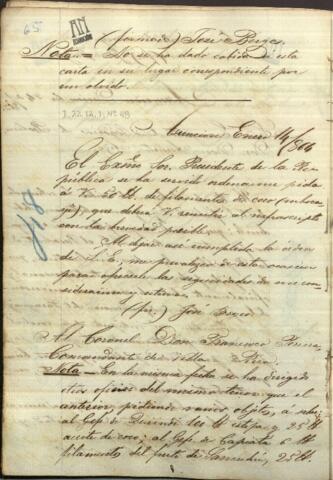 65
AN
(firmado) José Berges
Nota = No se ha dado cabida de esta
carta en su lugar correspondiente por
un olvido.
I-22,12,1, Nº 49
Asuncion Enero 14/866
El Exmo Sor. Presidente de la Re-
publica se ha servido ordenarme pida
á V. 50 lb. de filamentos de coco (mboca-
yá), que deberá V. remitir al infrascripto
con la brevedad posible.
Al dejar asi cumplida la órden
de S. E., me prevalezco de esta ocasion
para ofrecerle las seguridades de mi con-
sideracion y estima.
(fir.) José Berges
Al Coronel Don Francisco
Comandante de Villa Rica
Nota = En la misma fecha se ha dirigido
otros oficios del mismo tenor que el
anterior, pidiendo varios objetos, a saber:
al Gefe de 100 lb estopa y 25 lb
aceite de coco; al Gefe de Capiatá 6 lb
filamentos del fruto de 25 lb.